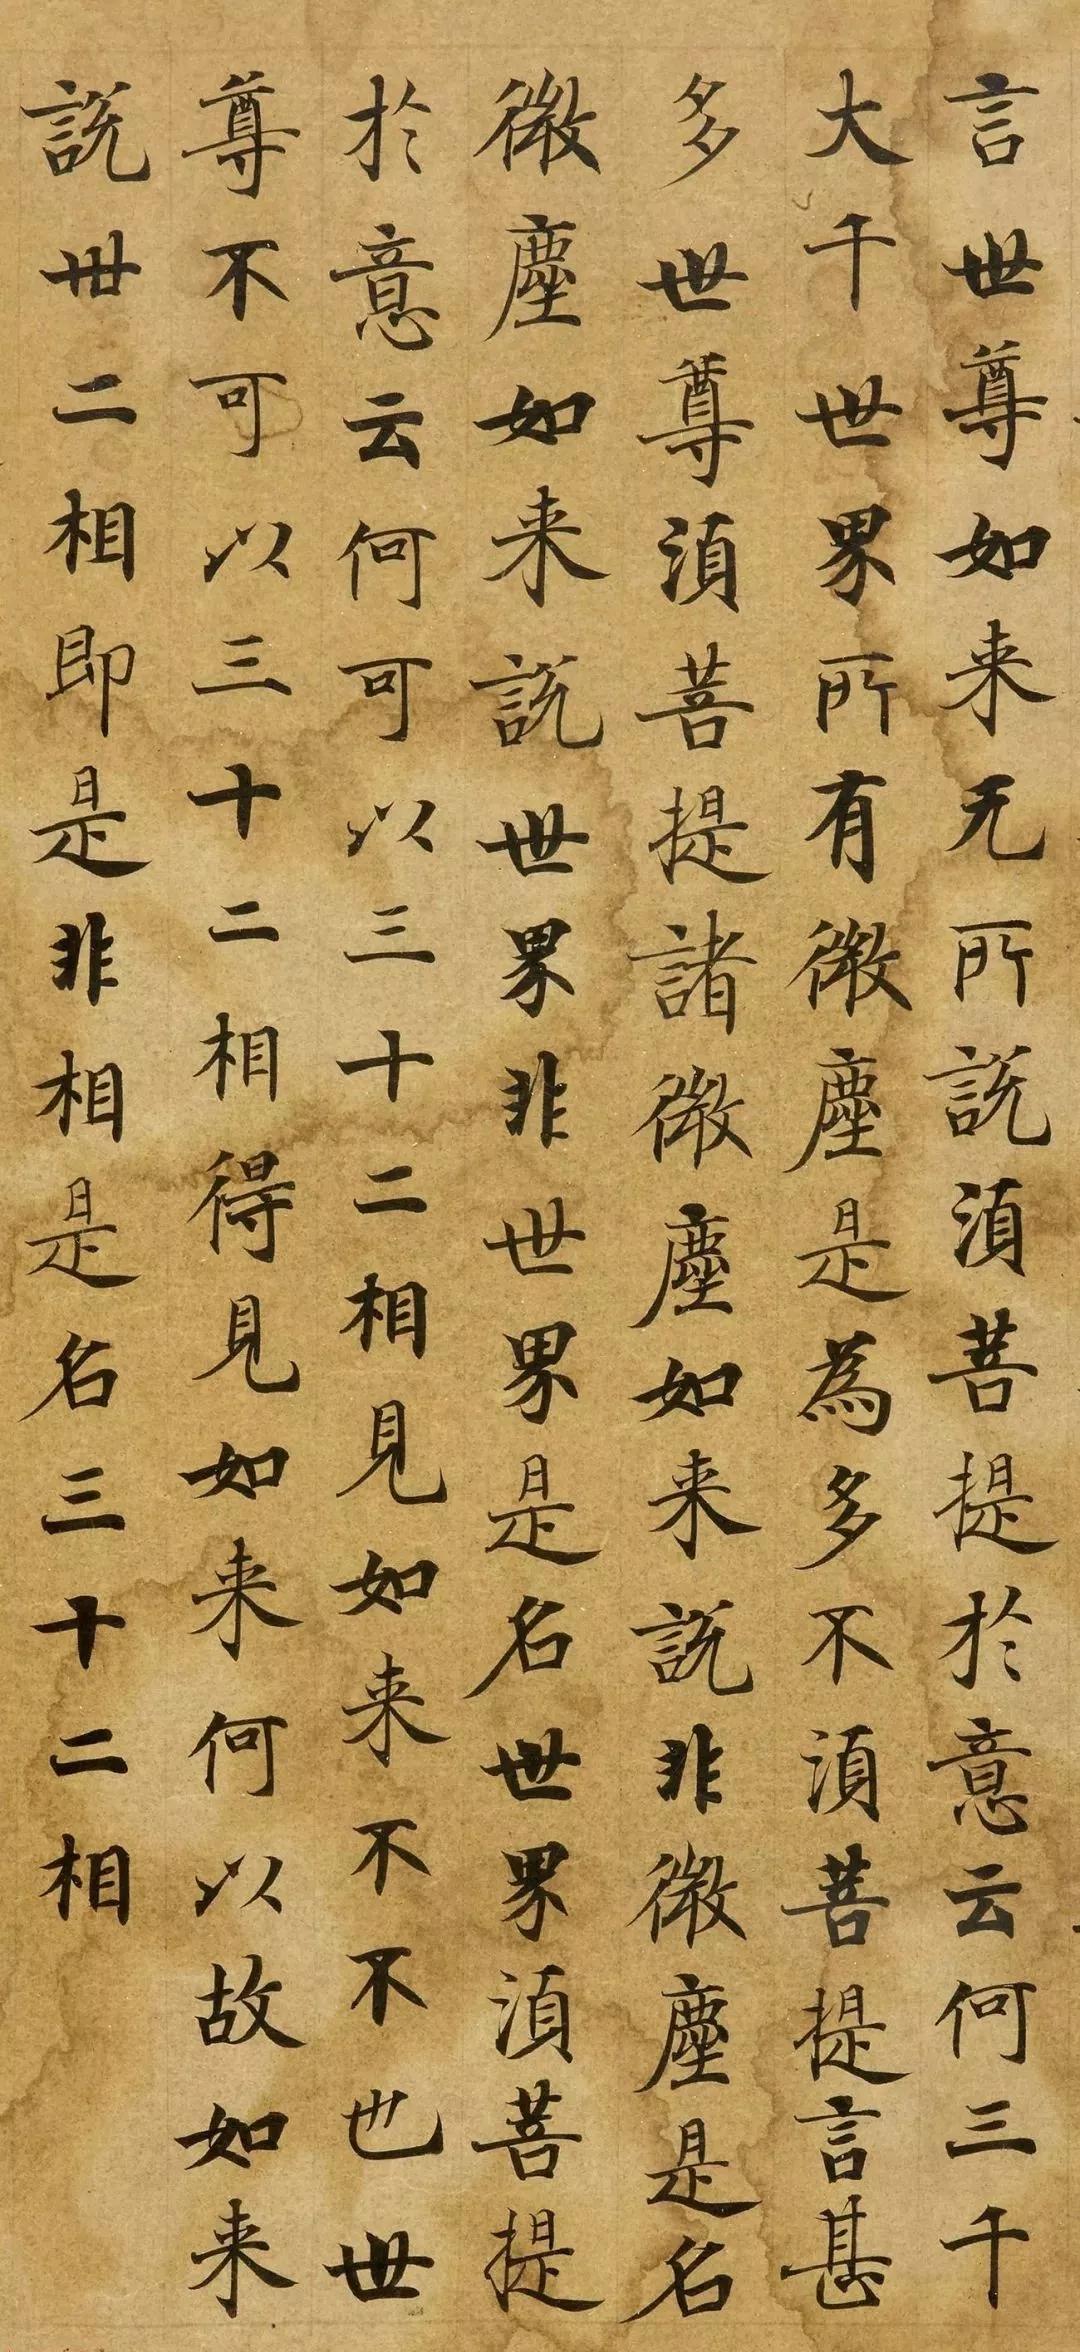 言世尊如来无所說湏菩提於意云何三千
大千世界所有微塵是為多不湏菩提言甚
多世尊湏菩提諸微塵如来說非微塵是名
微塵如来說世界非世界是名世界湏菩提
於意云何可以三十二相見如来不不也世
尊不可以三十二相得見如来何以故如来
說卅二相即是非相是名三十二相